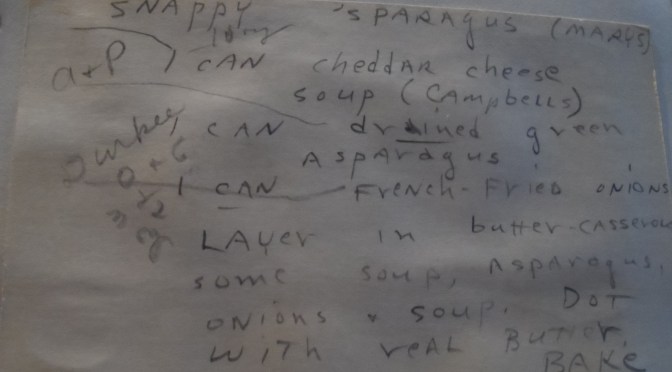 SNAPPY 'SPARAGUS (MARYS)
a+P 1 CAN cheddAR cheese
soup (CAMpbells)
1 CAN drained green
ASpARagus
1 CAN FRENCH-FRIED ONIONS
LAYer in butter-CASSerou
some soup, Asparagus,
ONIONS & soup. DOT
WITH reAL BuTTer.
BAKe